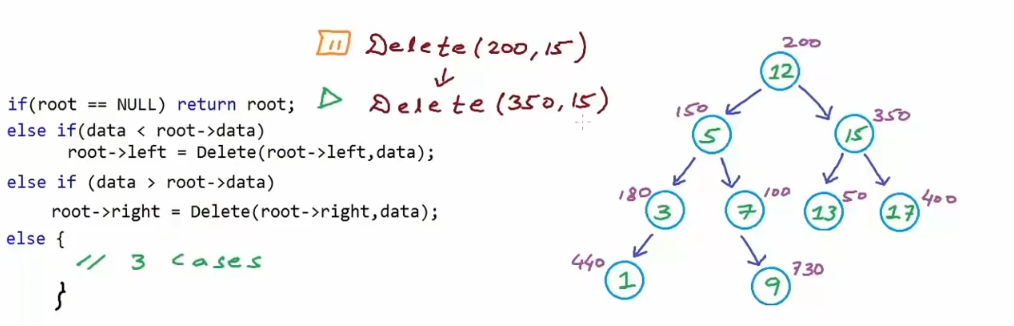 Delete(200,15)
Delete(350,15)
if(root == NULL) return root;
else if(data < root->data)
root->left = Delete(root->left,data);
else if (data > root->data)
root->right = Delete(root->right,data);
else {
// 3 cases
}
200
12
150
5
350
15
180
3
100
7
50
13
400
17
440
1
730
9